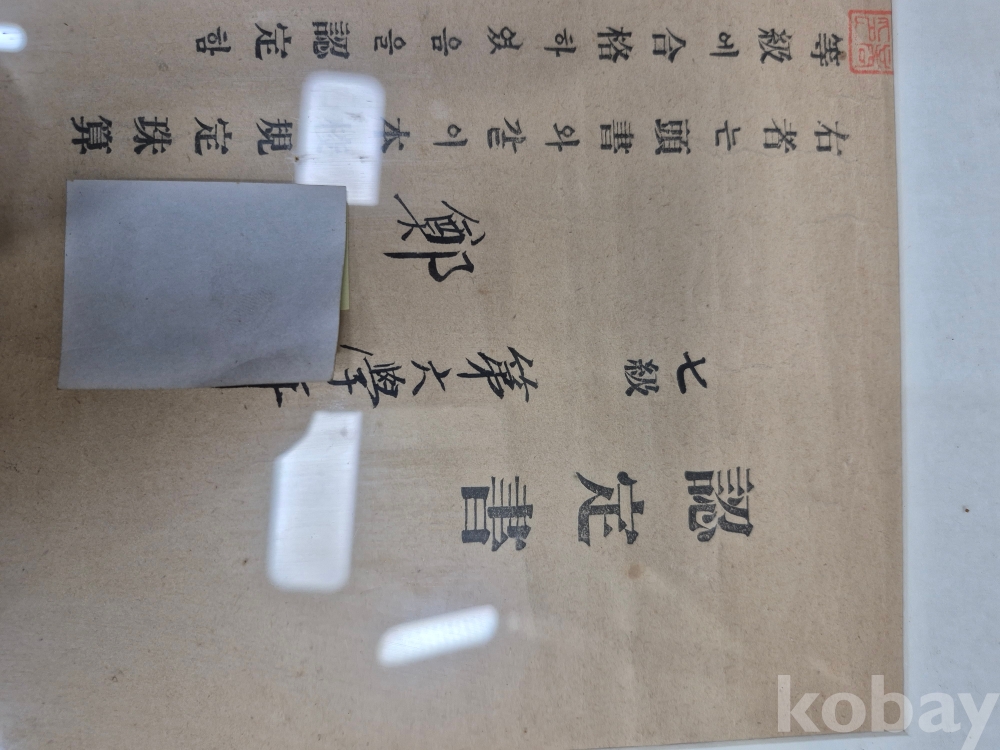 認定書
七級 第六學
鄭
右者는頭書와같이本規定珠算
等級에合格하였음을認定함
kobay